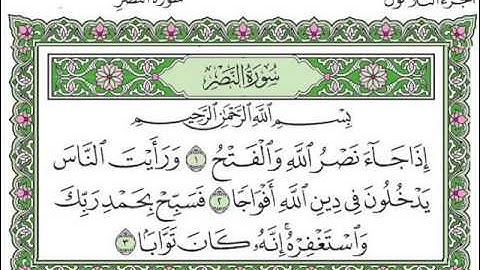 الجزء الثلاثون سورة النصر
سُورَةُ النَّصْرِ
بِسْمِ ٱللَّهِ ٱلرَّحْمَٰنِ ٱلرَّحِيمِ
إِذَا جَآءَ نَصْرُ ٱللَّهِ وَٱلْفَتْحُ ١ وَرَأَيْتَ ٱلنَّاسَ
يَدْخُلُونَ فِى دِينِ ٱللَّهِ أَفْوَاجًا ٢ فَسَبِّحْ بِحَمْدِ رَبِّكَ
وَٱسْتَغْفِرْهُ ۚ إِنَّهُۥ كَانَ تَوَّابًۢا ٣